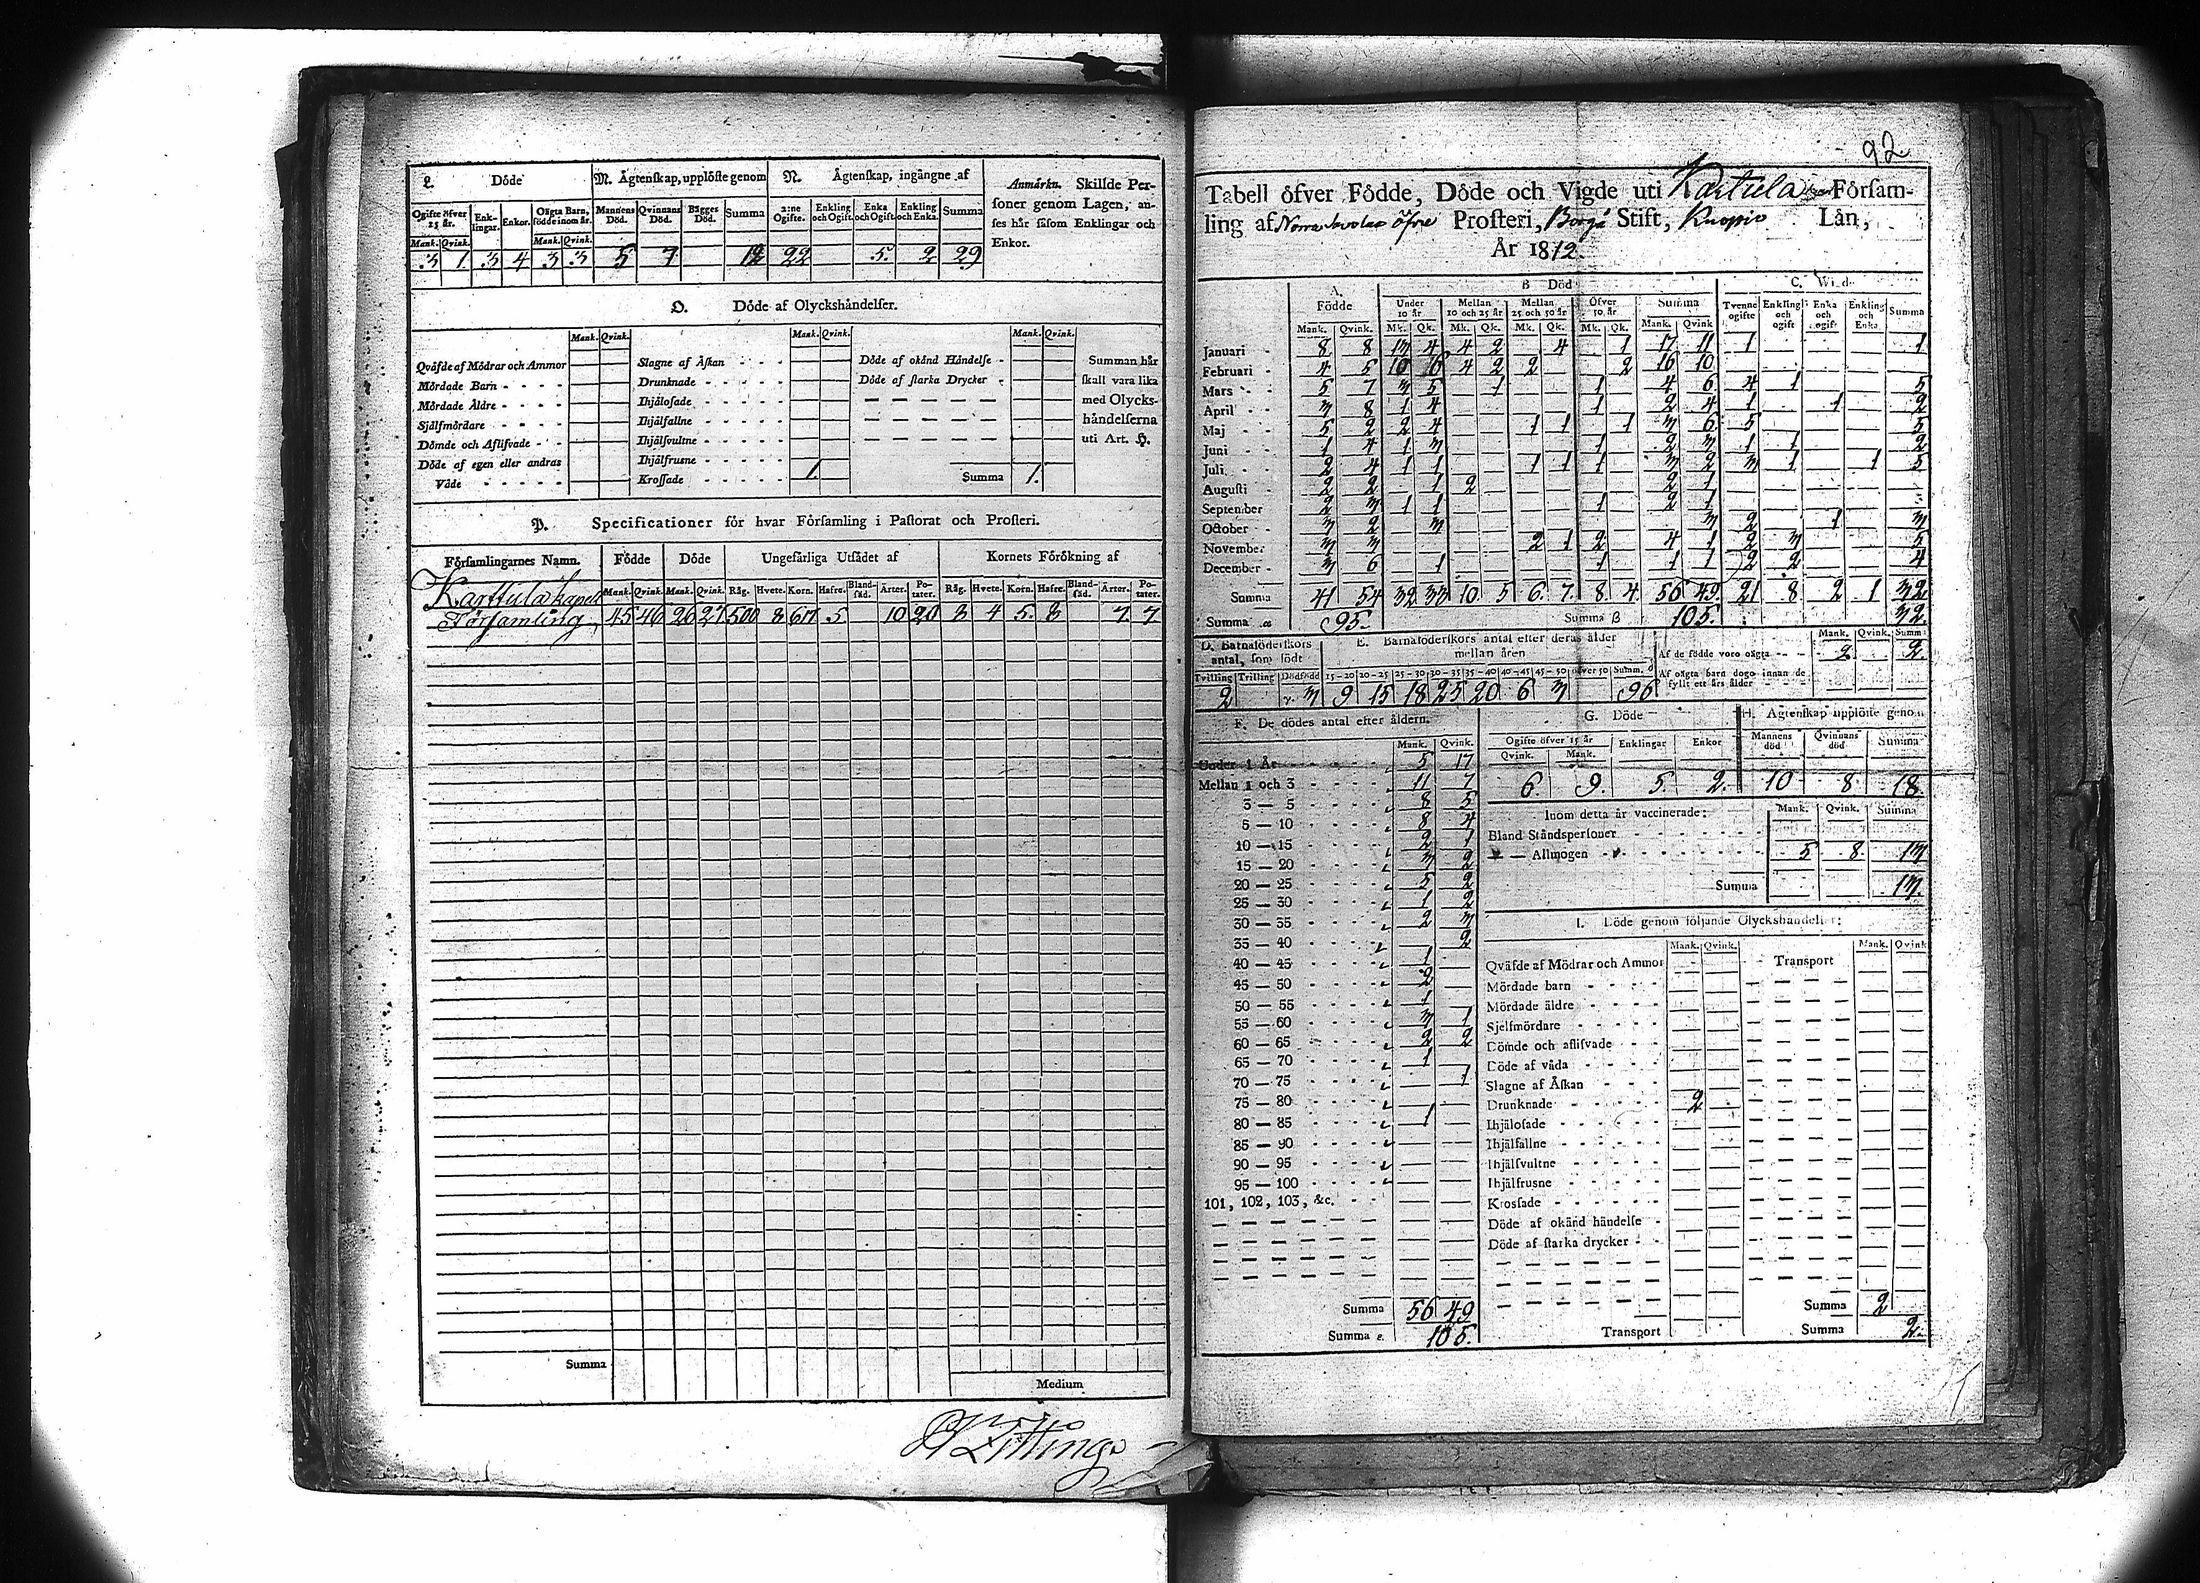 L. Döde M. Ägtenskap, upplöste genom N. Ägtenskap, ingångne af
Anmärkn. Skilsde Personer genom Lagen, anses här såsom Enklingar och Enkor.
Ogifte öfver 25 år. Enklingar. Enkor. Oägta Barn, födde inom år. Mannens Död. Qvinnans Död. Bägges Död. Summa 2:ne Ogifte. Enkling och Ogift Enka och Ogift Enkling och Enka. Summa
Mank. Qvink. Mank. Qvink.
3 1. 3 4 3 3 5 7 12 22 5. 2 29
O. Döde af Olyckshändelser.
Mank. Qvink. Mank. Qvink. Mank. Qvink.
Qväfde af Mödrar och Ammor Slagne af Åskan Döde af okänd Händelse Summan här
Mördade Barn Drunknade Döde af starka Drycker skall vara lika
Mördade Äldre Ihjälosade med Olycks-
Själfmördare Ihjälfallne händelserna
Dömde och Aflifvade Ihjälfvultne uti Art. H.
Döde af egen eller andras Våde Ihjälfrusne
Krossade 1. Summa 1.
P. Specificationer för hvar Församling i Pastorat och Prosteri.
Församlingarnes Namn. Födde Döde Ungefärliga Utsädet af Kornets Förökning af
Mank. Qvink. Mank. Qvink. Råg. Hvete. Korn. Hafre. Blandsäd. Ärter. Potater. Råg. Hvete. Korn. Hafre. Blandsäd. Ärter. Potater.
Karttula kapell
Församling 45 46 26 27 500 8 617 5 10 20 8 4 5. 8 7. 7
Summa
Medium
92
Tabell öfver Födde, Döde och Vigde uti Kartula Församling af Norra Savolax öfre Prosteri, Borgå Stift, Kuopio Län,
År 1812.
A. Födde B Död C. Wi d
Under 10 år Mellan 10 och 25 år Mellan 25 och 50 år Öfver 50 år Summa Tvenne ogifte Enkling och ogift Enka och ogift Enkling och Enka Summa
Mank. Qvink. Mk. Qk. Mk. Qk. Mk. Qk. Mk. Qk. Mank. Qvink
Januari 8 8 13 4 4 2 4 1 17 11 1 1
Februari 4 5 10 6 4 2 2 2 16 10
Mars 5 7 3 5 1 1 4 6 4 1 5
April 3 8 1 4 1 2 4 1 1 2
Maj 5 2 2 4 1 1 1 3 6 5 5
Juni 1 4 1 3 1 2 3 1 1 2
Juli 2 4 1 1 1 1 1 3 2 3 1 1 5
Augusti 2 2 1 2 2 1
September 2 3 1 1 1 2 1
October 3 2 3 3 2 1 3
November 3 3 2 1 2 4 1 2 3 5
December 3 6 1 1 1 1 2 2 4
Summa 41 54 32 33 10 5 6. 7. 8 4 56 49. 21 8 2 1 32
Summa a 95. Summa B 105. 32.
D. Barnaföderskors antal, som födt E. Barnaföderskors antal efter deras ålder mellan åren
Mank. Qvink. Summ
Af de födde voro oägta 2. 2.
Af oägta barn dogo innan de fyllt ett års ålder
Tvilling Trilling Dödfödd 15-20 20-25 25-30 30-35 35-40 40-45 45-50 öfver 50 Summ.
2 3 9 15 18 25 20 6 3 96
F. De dödes antal efter åldern. G. Döde H. Ägtenskap upplöste genom
Ogifte öfver 15 år Enklingar Enkor Mannens död Qvinnans död Summa
Mank. Qvink. Qvink. Mank.
6. 9. 5. 2. 10 8 18
Under 1 År 5 17
Mellan 1 och 3 11 7
3 — 5 8 5
5 — 10 8 4
10 — 15 2 1
15 — 20 3 2
20 — 25 5 2
25 — 30 1 2
30 — 35 2 3
35 — 40 2
40 — 45 1
45 — 50 2
50 — 55 1
55 — 60 3 1
60 — 65 2 2
65 — 70 1
70 — 75 1
75 — 80
80 — 85 1
85 — 90
90 — 95
95 — 100
101, 102, 103, &c.
Summa 56 49
Summa e. 105.
Inom detta år vaccinerade: Mank. Qvink. Summa
Bland Ståndspersoner
— Allmogen 5 8. 13
Summa 13.
I. Döde genom följande Olyckshändelser:
Mank. Qvink. Mank. Qvink
Qväfde af Mödrar och Ammor Transport
Mördade barn
Mördade äldre
Sjelfmördare
Dömde och aflifvade
Döde af våda
Slagne af Åskan
Drunknade 2
Ihjälosade
Ihjälfallne
Ihjälfvultne
Ihjälfrusne
Krossade
Döde af okänd händelse
Döde af starka drycker
Summa 2
Transport Summa 2.